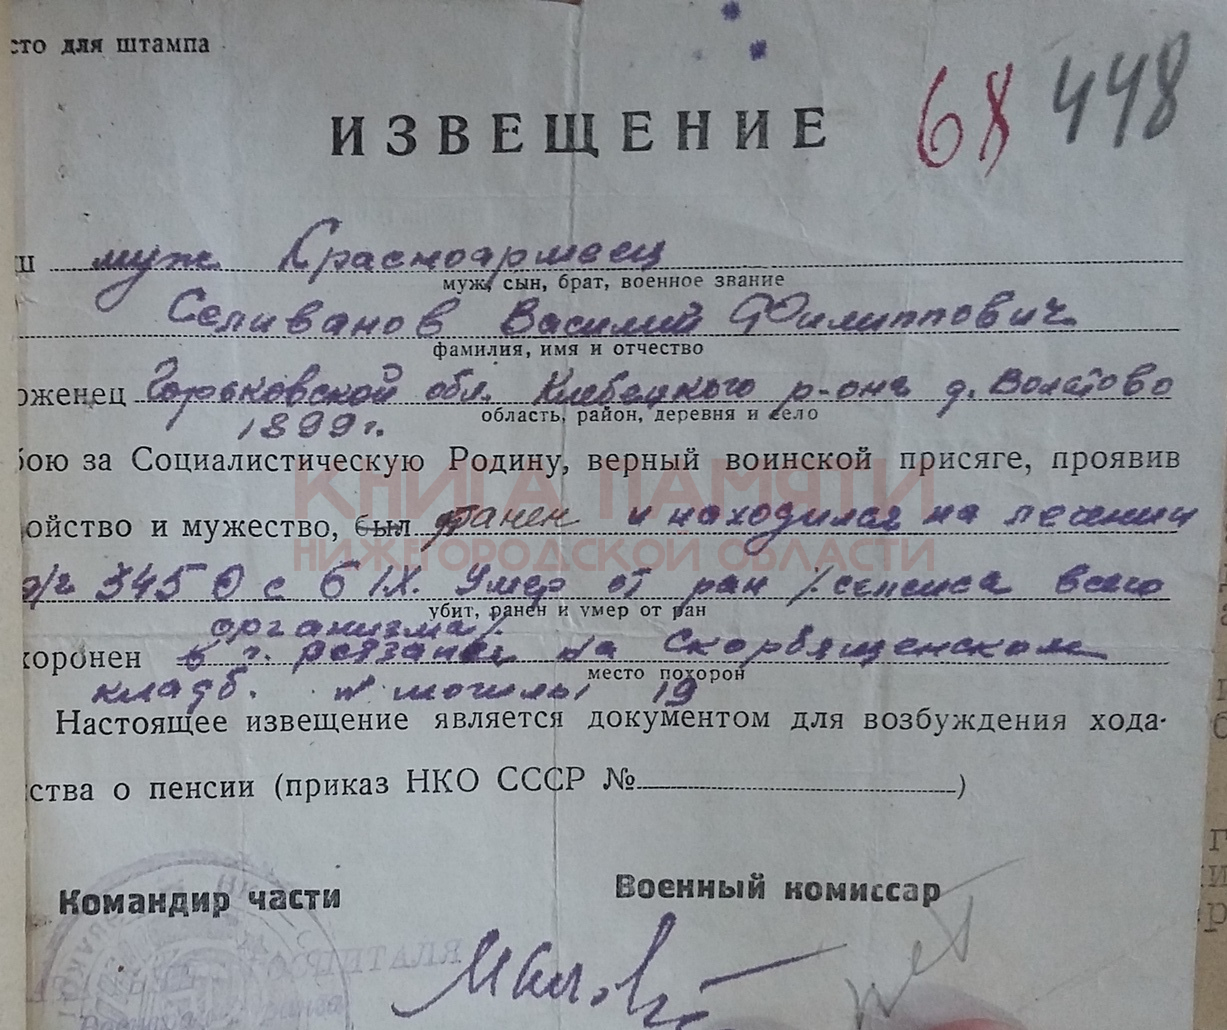 сто для штампа
68 448
ИЗВЕЩЕНИЕ
ш муж Красноармеец
муж, сын, брат, военное звание
Селиванов Василий Филиппович
фамилия, имя и отчество
оженец Горьковской обл. р-она д.
область, район, деревня и село
1899 г.
бою за Социалистическую Родину, верный воинской присяге, проявив
КНИГА ПАМЯТИ
ойство и мужество, был ранен и находился на лечении
НИЖЕГОРОДСКОЙ ОБЛАСТИ
э/г 3450 с 6 IX. Умер от ран /сепсиса всего
убит, ранен и умер от ран
организма/.
хоронен в г. на Скорбященском
место похорон
кладб. № могилы 19
Настоящее извещение является документом для возбуждения хода-
ства о пенсии (приказ НКО СССР № )
Командир части Военный комиссар